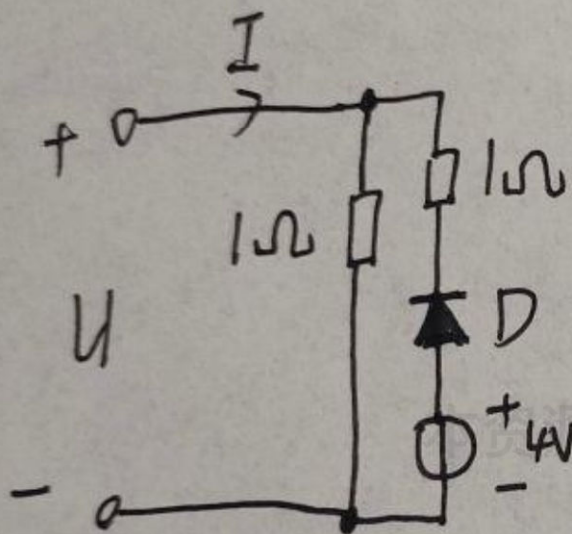 I
+
1Ω
1Ω
U
D
+
4V
-
-